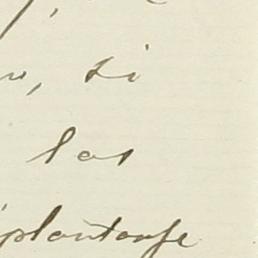 , si
las
plantarse